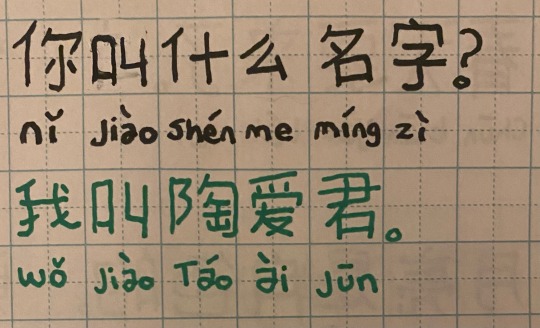 你叫什么名字?
nǐ jiào shén me míng zì
我叫陶爱君。
wǒ jiào Táo ài jūn